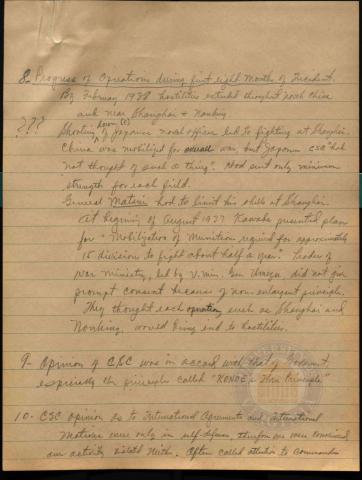 8- Progress of Operations during first eight months of Incident.
By February 1938 hostilities extended throughout north China
and near Shanghai & Nanking
??? Shooting down (?) of Japanese naval officer led to fighting at Shanghai.
China was mobilized for war, but Japanese CSC "had
not thought of such a thing". Had sent only minimum
strength for each field.
General Matsui had to limit his skills at Shanghai.
At beginning of August 1937 Kawabe presented plan
for "Mobilization of Munitions required for approximately
15 divisions to fight about half a year." Leader of
war ministry, led by V. min. Gen Umezu did not give
prompt consent because of non-enlargement principle.
They thought each operation, such as Shanghai and
Nanking, would bring end to hostilities.
9- Opinion of CSC was in accord with that of Government,
especially the principle called "KONOE's Three Principle"
10- CSC opinion as to International Agreements and International
Matters were only in self-defense, therefore we were convinced
our activity violated neither. Often called attention to commanders